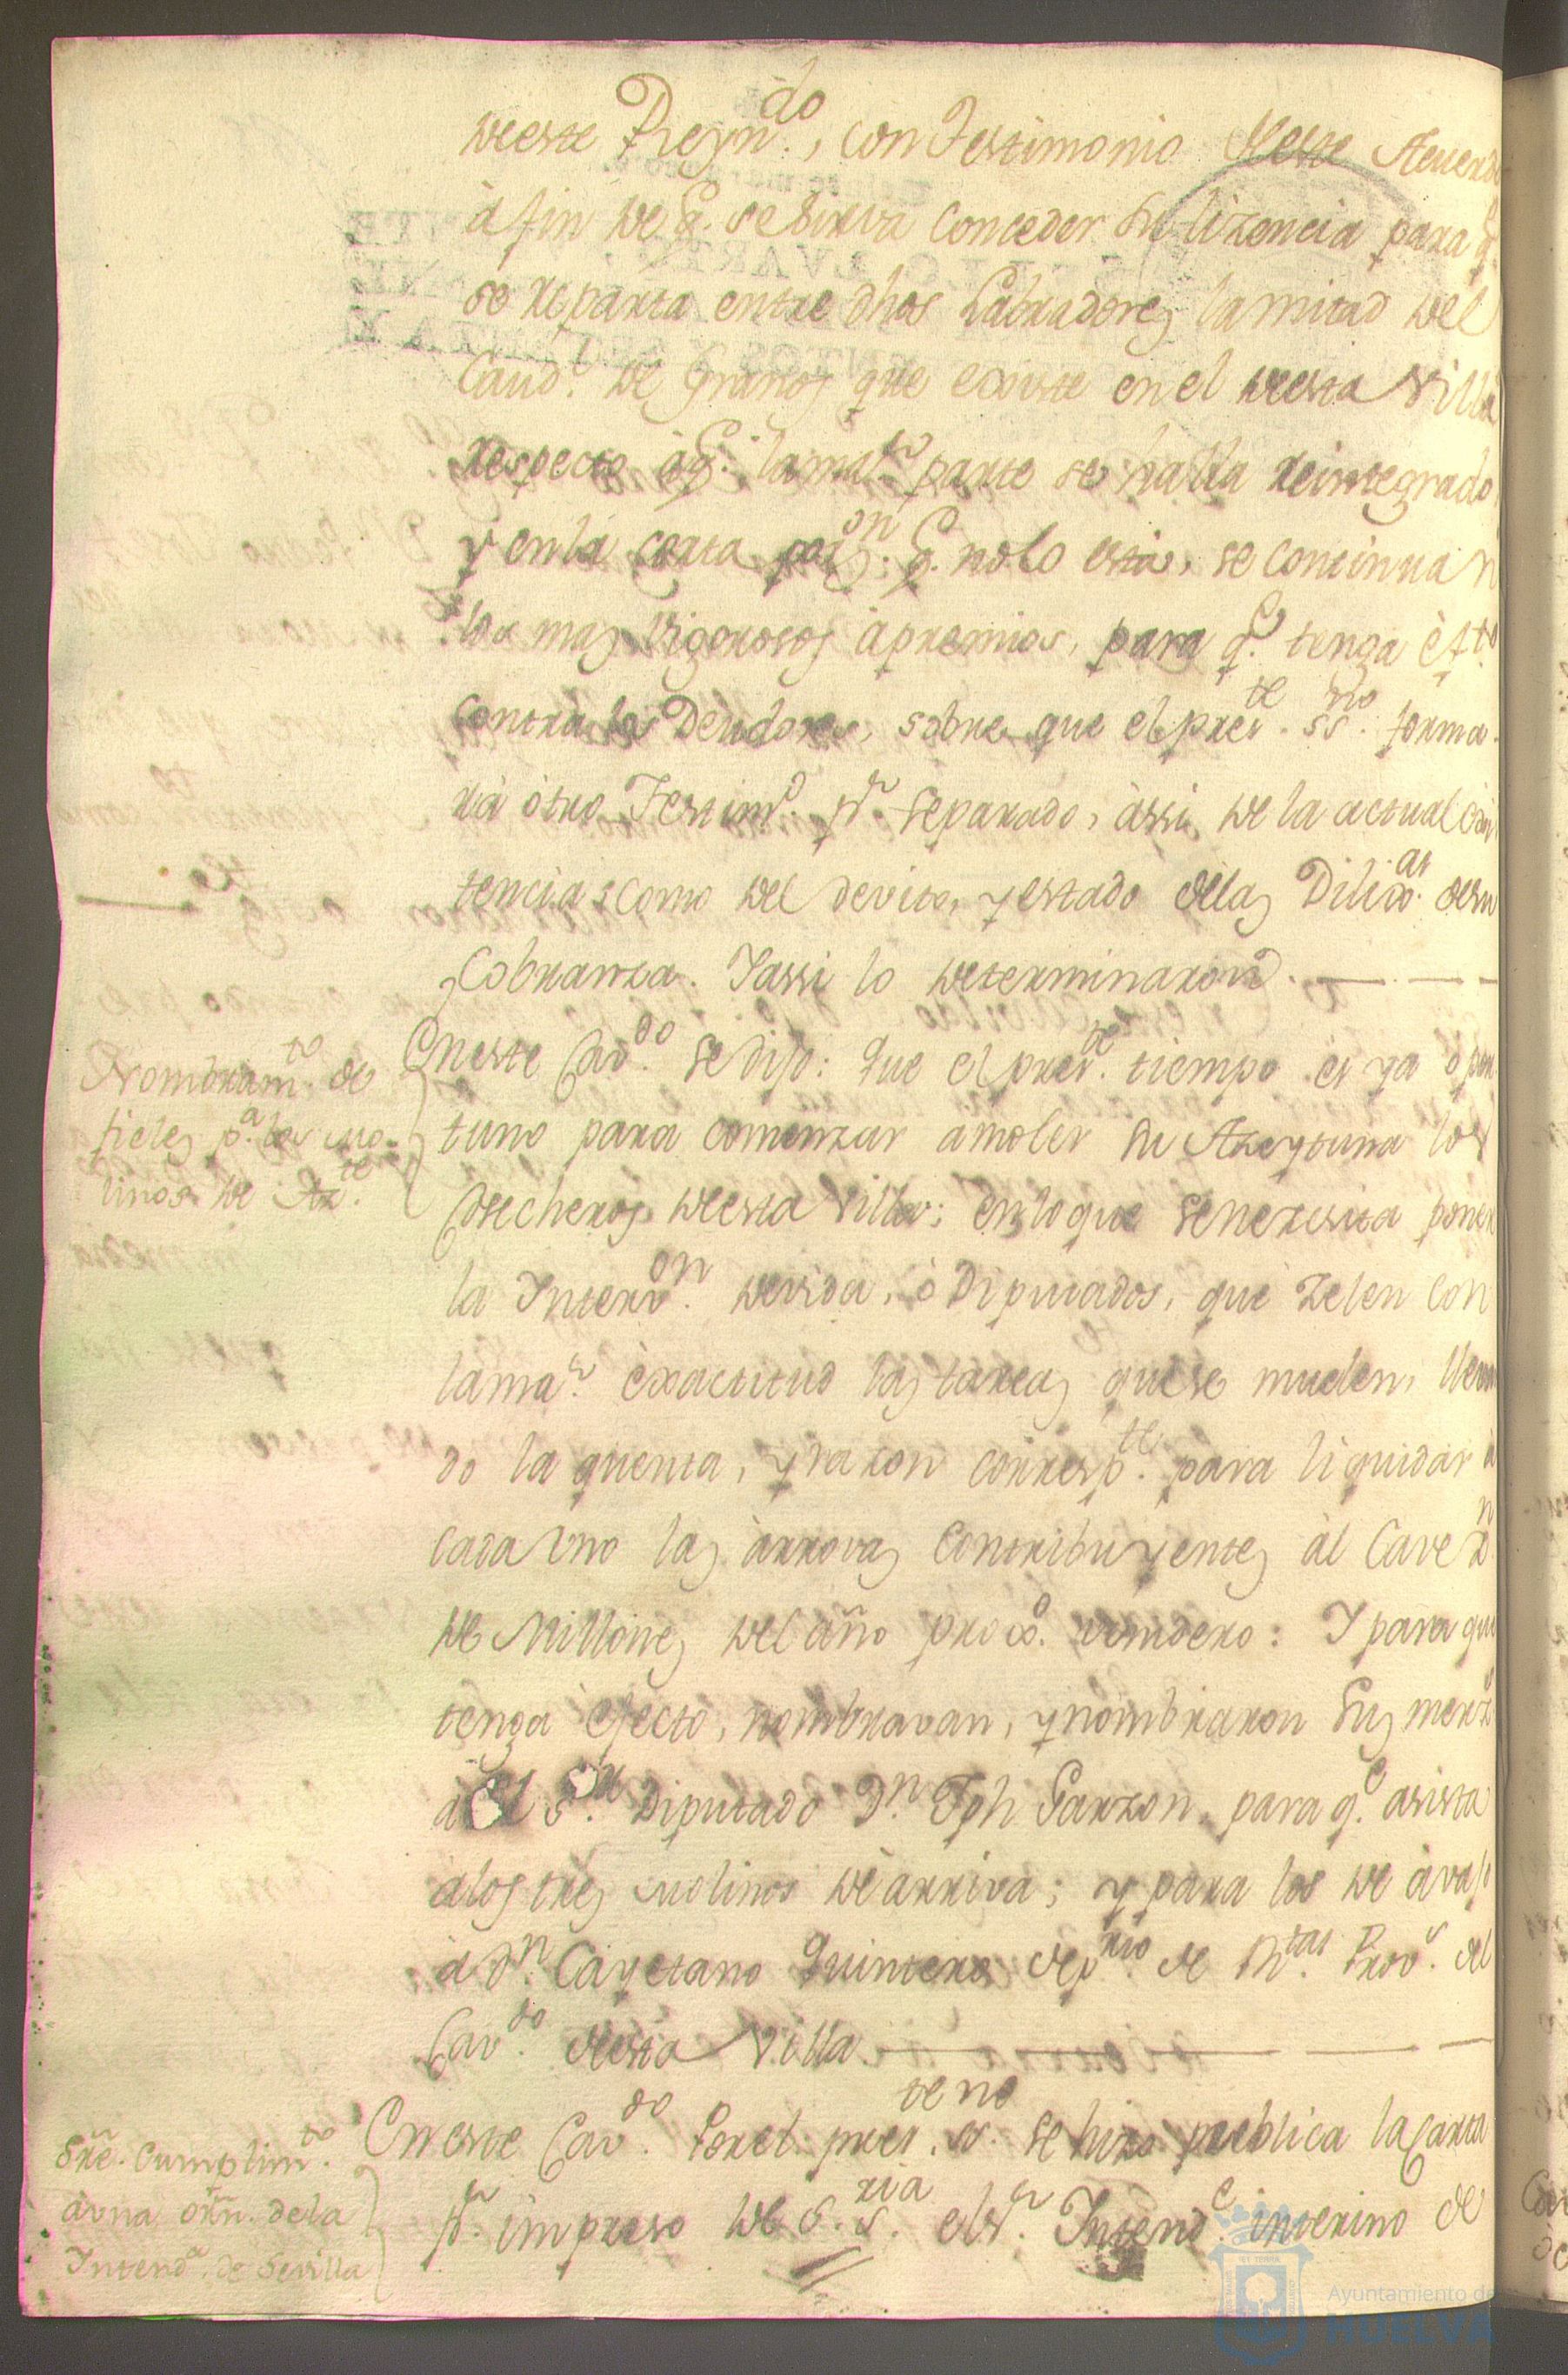 deeste Reyn.do, con Testimonio deeste Acuerdo
à fin de q. se sirva Conceder su lizencia para q.
se reparta entre dhos Labradores la mitad del
Caud.l de granos que existe en el deesta Villa
respecto àq.e la ma.r parte se halla reintegrado
y en la corta porz.on q. nolo està, se continuan
los mas rigorosos àpremios, para q.e tenga èft.o
contra los Deudores, sobre que el pres.te ss.rio forma-
rà òtro Testim.o p.r separado, àssi, de la actual
tencia, como del devito, y estado de las Dilix.as desu
Cobranza. Y assi lo determinaron. — — —
Nombram.to de
fieles p.a los mo-
linos de Az.te
Eneste Cav.do se dijo: que el pres.te tiempo es ya opor-
tuno para comenzar amoler su Azeytuna los
Cosecheros deesta Villa; enloque senezesita poner
la Interv.on devida, ò Diputados, que zelen con
lama.r èxactitud las tareas que se muelen, llevan
do la quenta, y razon corresp.te para liquidar à
cada Uno las àrrovas Contribuyentes àl Cavez.n
de Millones del año prox.o venidero: Y para que
tenga èfecto, nombravan, y nombraron Sus merz.s
à el s.or Diputado D.n Jph Garzon, para q.e asista
alos tres molinos de àrriva; y para los de àvajo
à D.n Cayetano Quintero dep.rio de R.tas Prov.s del
Cav.do desta Villa — — —
Sre. Cumplim.to
àuna orn. dela
Intend.a de Sevilla
Eneste Cav.do Porel pres.te ss.no se hizo publica la Carta
p.r impreso de S.S.ria els.r Intend.e interino de
Ayuntamiento de
HUELVA